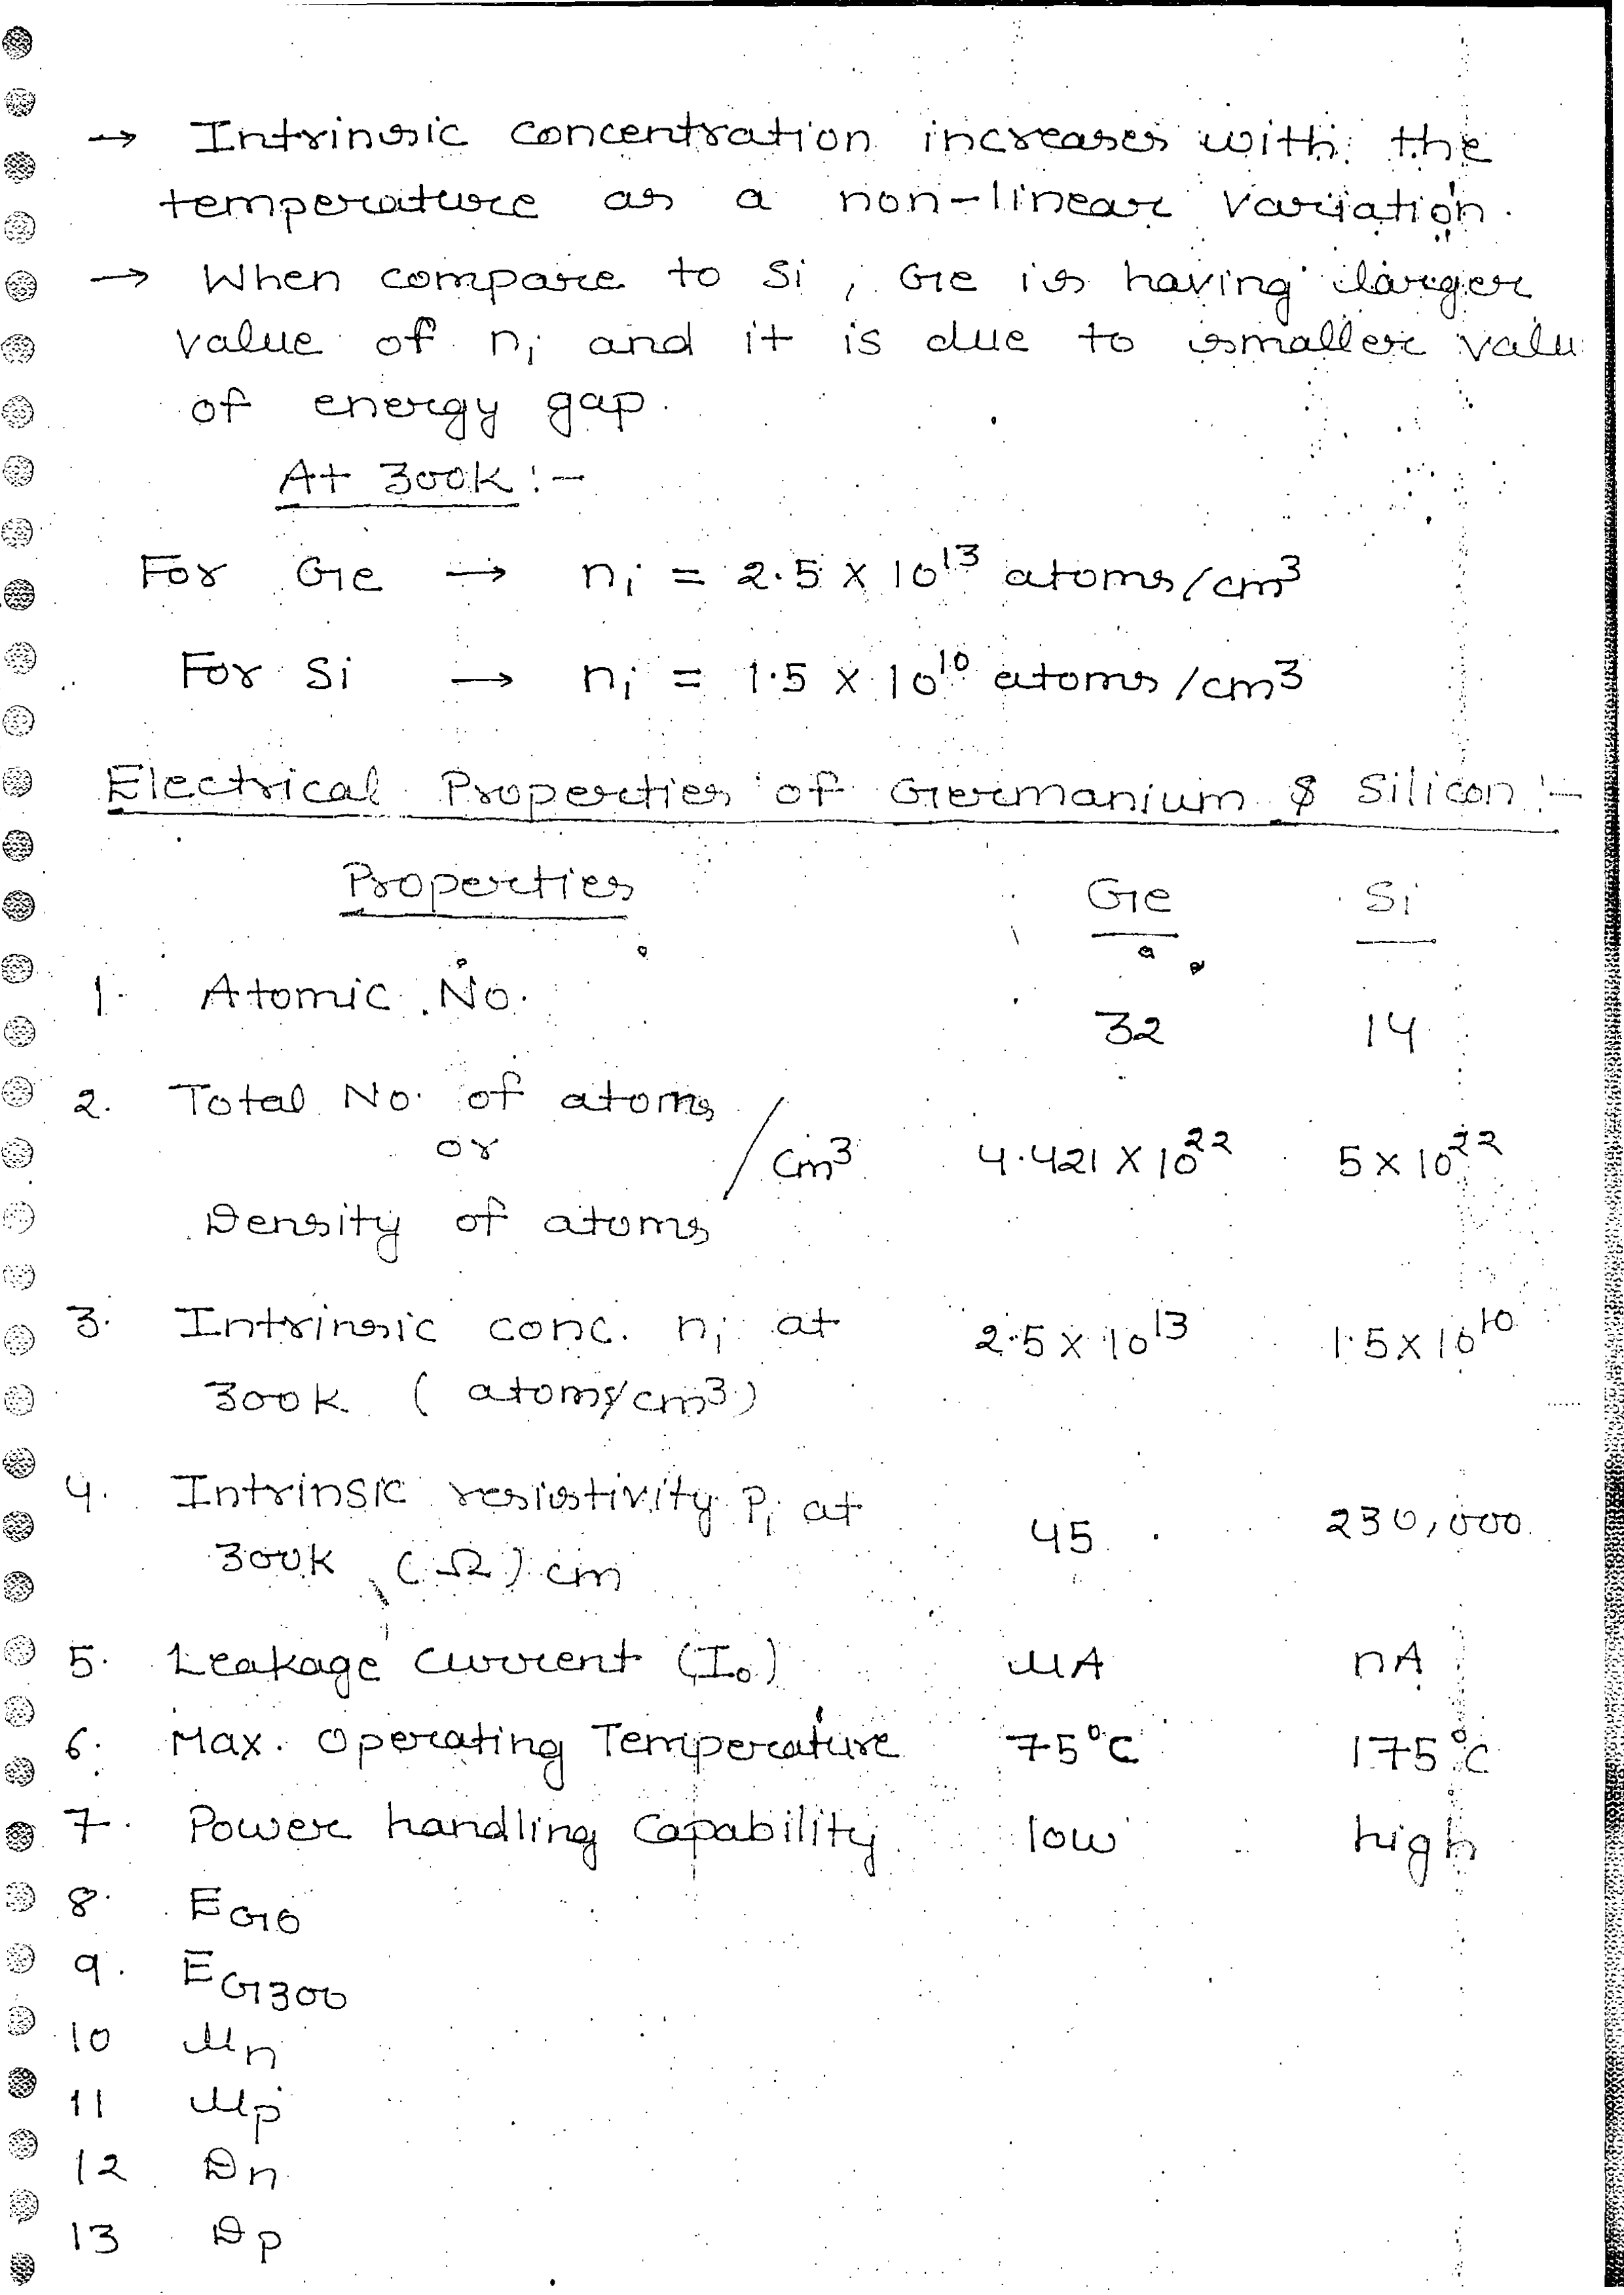 → Intrinsic concentration increases with the
temperature as a non-linear variation.
→ When compare to Si, Ge is having larger
value of nᵢ and it is due to smaller valu
of energy gap.
At 300K :-
For Ge → nᵢ = 2.5 × 10¹³ atoms/cm³
For Si → nᵢ = 1.5 × 10¹⁰ atoms/cm³
Electrical Properties of Germanium & Silicon :-
Properties Ge Si
1. Atomic No. 32 14
2. Total No. of atoms
or / cm³ 4.421 × 10²² 5 × 10²²
Density of atoms
3. Intrinsic conc. nᵢ at 2.5 × 10¹³ 1.5 × 10¹⁰
300K (atoms/cm³)
4. Intrinsic resistivity ρᵢ at 45 230,000
300K (Ω) cm
5. Leakage current (I₀) μA nA
6. Max. Operating Temperature 75°C 175°C
7. Power handling Capability low high
8. E_G0
9. E_G300
10 μn
11 μp
12 Dn
13 Dp